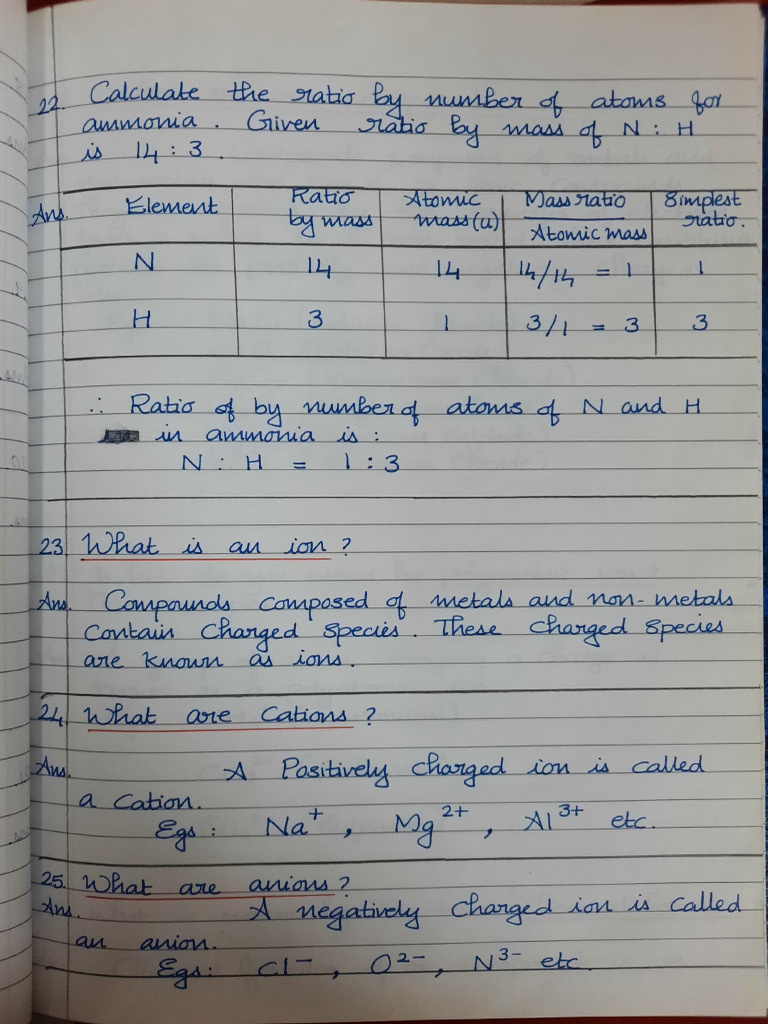 22. Calculate the ratio by number of atoms for
ammonia. Given ratio by mass of N : H
is 14 : 3.
Ans. Element Ratio by mass Atomic mass(u) Mass ratio / Atomic mass Simplest ratio.
N 14 14 14/14 = 1 1
H 3 1 3/1 = 3 3
∴ Ratio of by number of atoms of N and H
in ammonia is :
N : H = 1 : 3
23. What is an ion ?
Ans. Compounds composed of metals and non-metals
contain charged species. These charged species
are known as ions.
24. What are Cations ?
Ans. A Positively charged ion is called
a cation.
Egs : Na⁺ , Mg²⁺ , Al³⁺ etc.
25. What are anions ?
Ans. A negatively charged ion is called
an anion.
Egs : Cl⁻ , O²⁻ , N³⁻ etc.